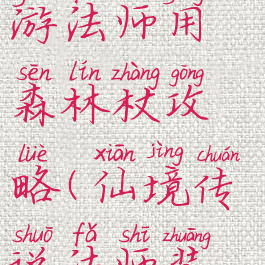 游法师用
sēn lín zhàng gōng
森林杖攻
lüè xiān jìng chuán
略(仙境传
shuō fǎ shī zhuāng
说法师装